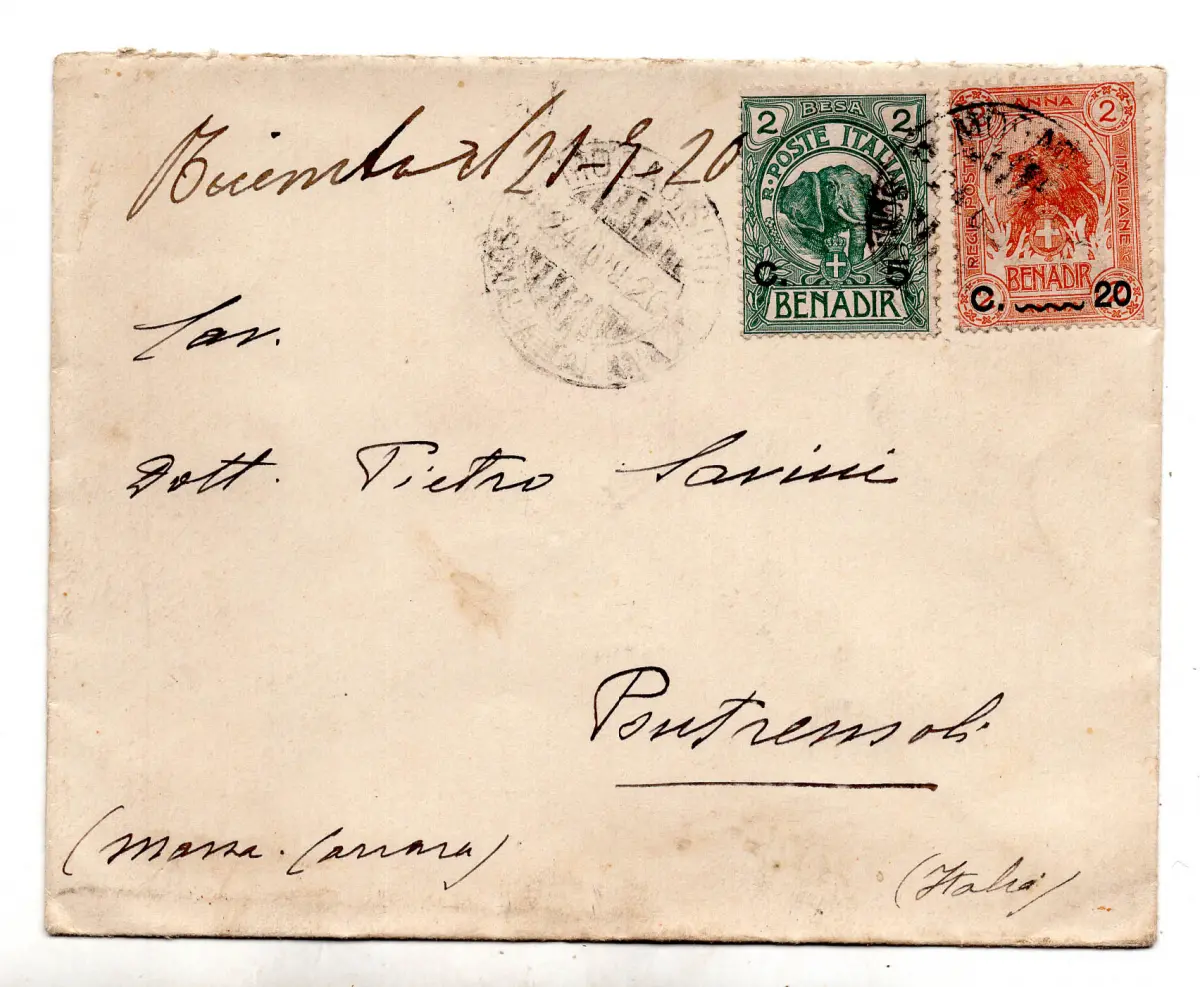 Ricevuta il 21-9-20
2 BESA 2
R. POSTE ITALIANE
C. 5
BENADIR
ANNA 2
REGIE POSTE ITALIANE
BENADIR
C. 20
Cav.
Dott. Pietro Savini
Pontremoli
(Massa. Carrara)
(Italia)